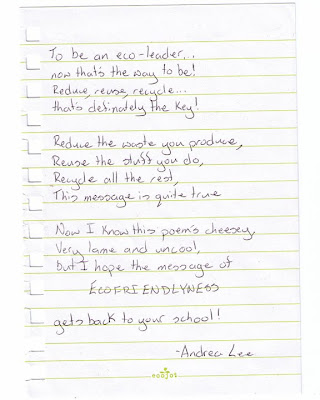 To be an eco-leader...
now that's the way to be!
Reduce, reuse, recycle...
that's definately the key!
Reduce the waste you produce,
Reuse the stuff you do,
Recycle all the rest,
This message is quite true
Now I know this poem's cheesey,
Very lame and uncool,
but I hope the message of
ECOFRIENDLYNESS
gets back to your school!
-Andrea Lee
ecojot